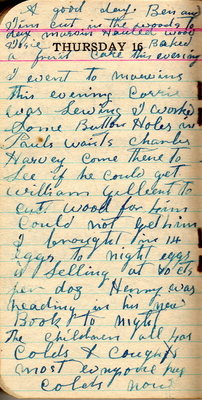 A good day. Ben and
Nins cut in the woods to
day marvin Hauled wood
Dorie Baked
THURSDAY 16
a fruit Cake this evening
I went to marvins
this evening Carrie
was Sewing I worked
Some Button Holes in
Pauls waists Charles
Harvey Come there to
See if he could get
William Gillent to
cut wood for him
Could not get him
I brought in 14
eggs to night eggs
is Selling at 40 cts
per doz Henry was
reading in his new
Book to night
The Children all has
Colds & Coughs
most everyone has
Colds now